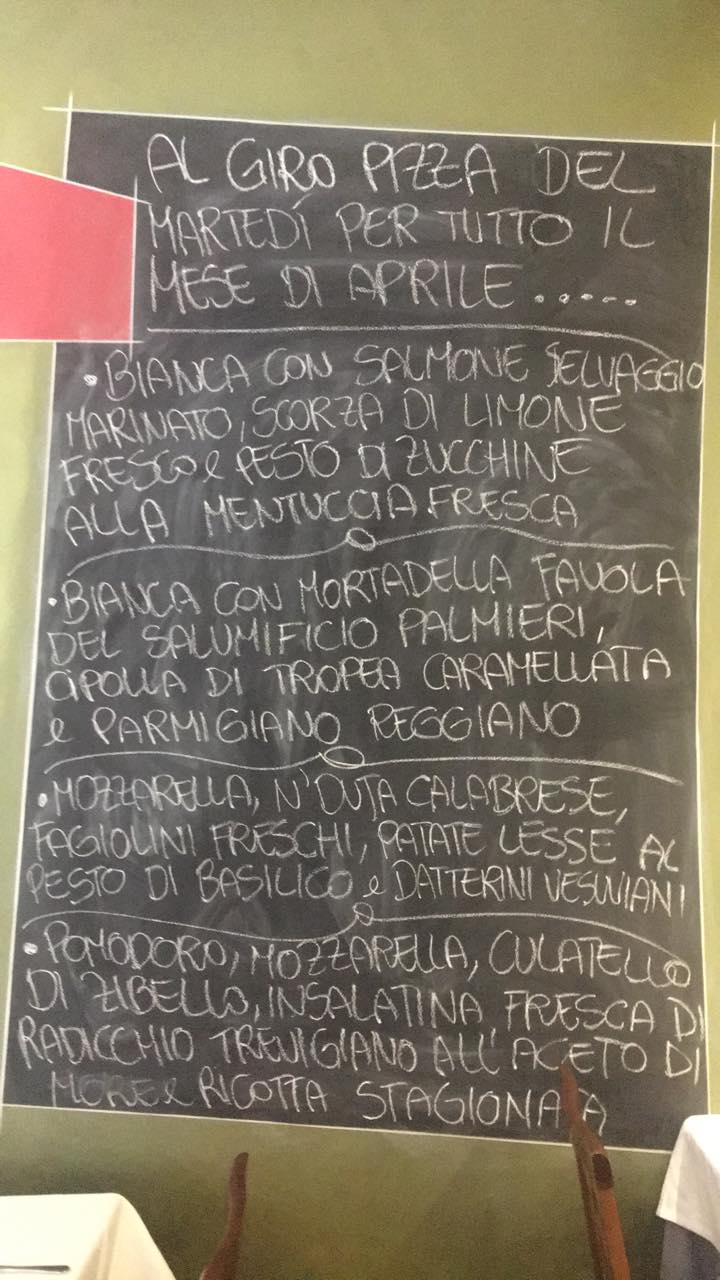 AL GIRO PIZZA DEL
MARTEDÍ PER TUTTO IL
MESE DI APRILE ......
• BIANCA CON SALMONE SELVAGGIO
MARINATO, SCORZA DI LIMONE
FRESCO e PESTO DI ZUCCHINE
ALLA MENTUCCIA FRESCA
• BIANCA CON MORTADELLA FAVOLA
DEL SALUMIFICIO PALMIERI,
CIPOLLA DI TROPEA CARAMELLATA
e PARMIGIANO REGGIANO
• MOZZARELLA, N'DUJA CALABRESE,
FAGIOLINI FRESCHI, PATATE LESSE AL
PESTO DI BASILICO e DATTERINI VESUVIANI
• POMODORO, MOZZARELLA, CULATELLO
DI ZIBELLO, INSALATINA FRESCA DI
RADICCHIO TREVIGIANO ALL'ACETO DI
MORE e RICOTTA STAGIONATA